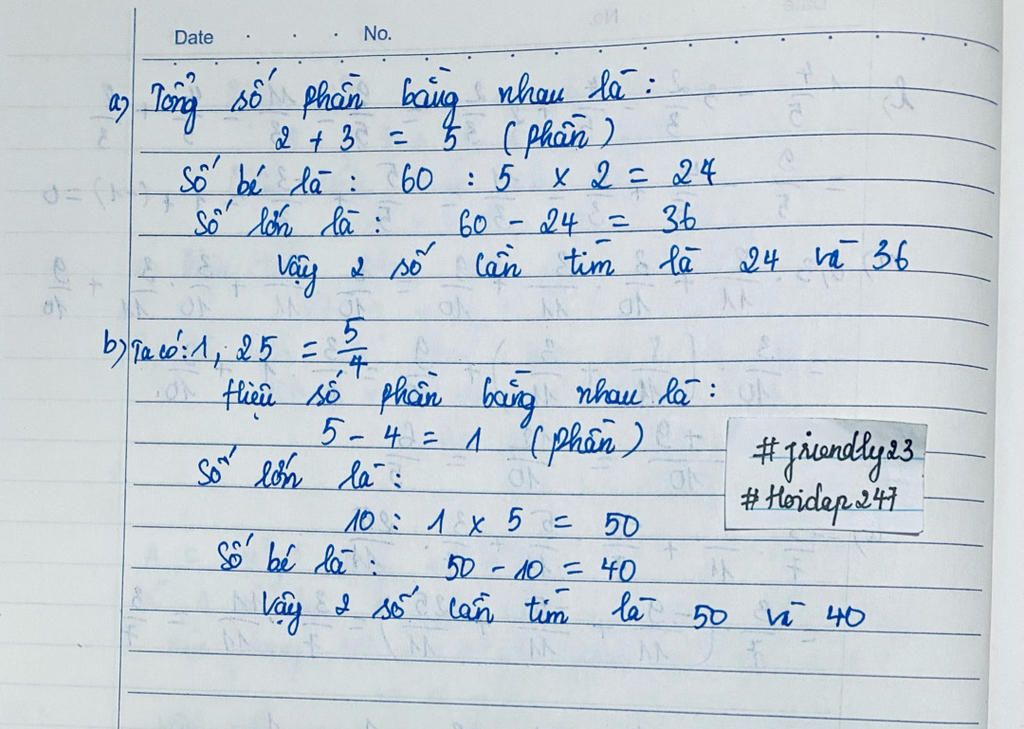 Date . . . No.
a) Tổng số phần bằng nhau là :
2 + 3 = 5 (phần)
Số bé là : 60 : 5 x 2 = 24
Số lớn là : 60 - 24 = 36
Vậy 2 số cần tìm là 24 và 36
b) Ta có : 1, 25 = 5/4
Hiệu số phần bằng nhau là :
5 - 4 = 1 (phần)
Số lớn là :
10 : 1 x 5 = 50
Số bé là : 50 - 10 = 40
Vậy 2 số cần tìm là 50 và 40
# friendly23
# Hoidap247